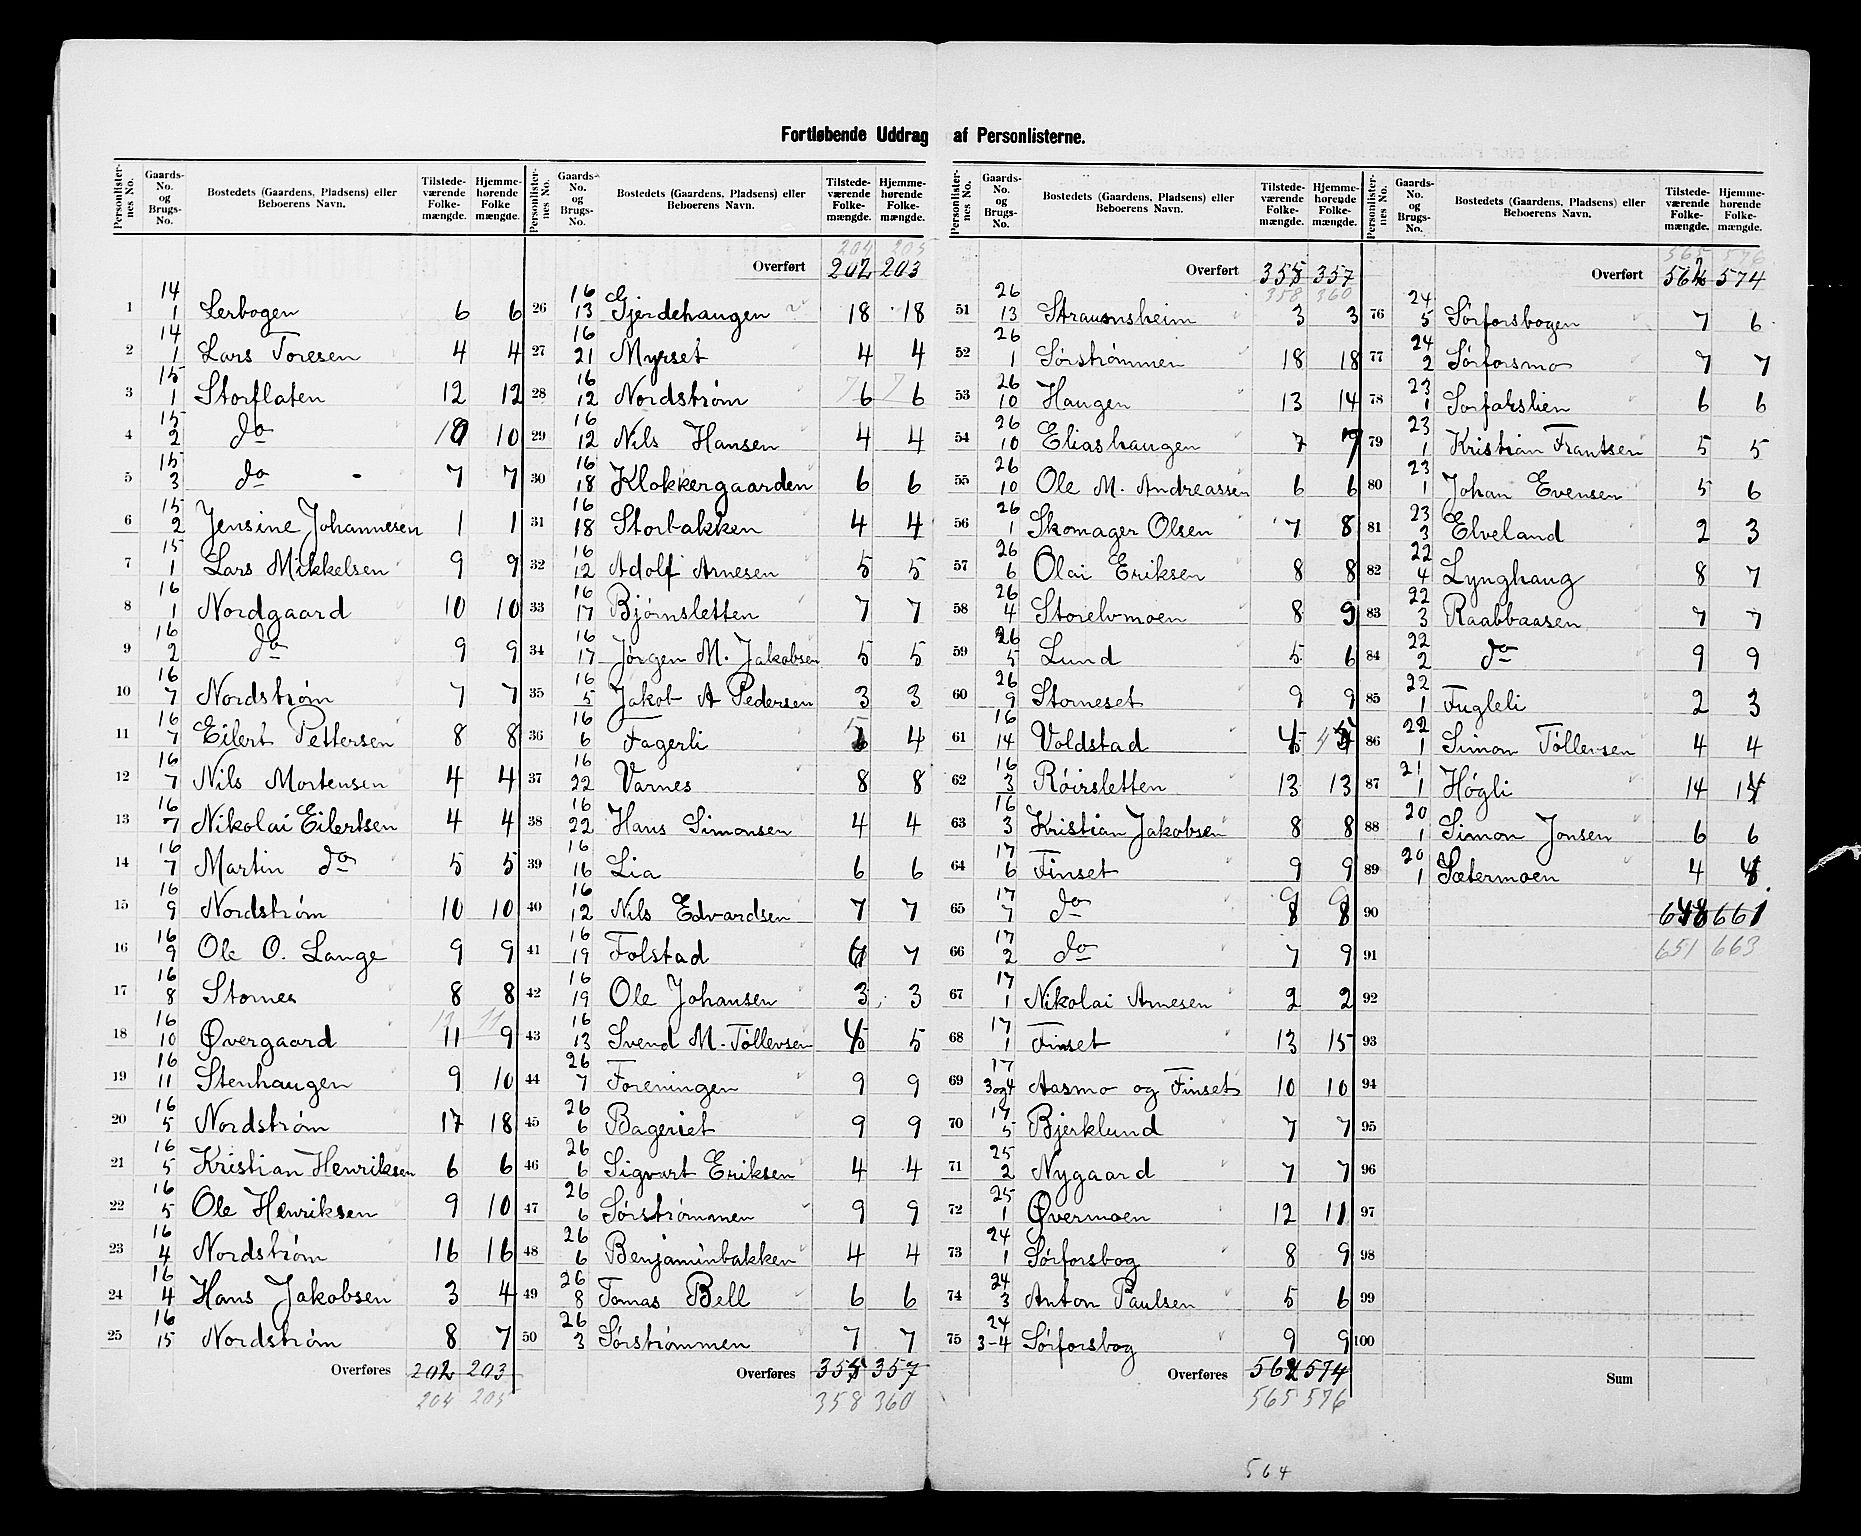 Fortløbende Uddrag af Personlisterne.
Personlister-nes No. | Gaards-No. og Brugs-No. | Bostedets (Gaardens, Pladsens) eller Beboerens Navn. | Tilstede-værende Folke-mængde. | Hjemme-hørende Folke mængde.
1 14/1 Lerbogen 6 6
2 14/1 Lars Toresen 4 4
3 15/1 Storflaten 12 12
4 15/2 do 10 10
5 15/3 do - 7 7
6 15/2 Jensine Johannesen 1 1
7 15/1 Lars Mikkelsen 9 9
8 16/1 Nordgaard 10 10
9 16/2 do 9 9
10 16/7 Nordstrøm 7 7
11 16/7 Eilert Pettersen 8 8
12 16/7 Nils Mortensen 4 4
13 16/7 Nikolai Eilertsen 4 4
14 16/7 Martin do 5 5
15 16/9 Nordstrøm 10 10
16 16/9 Ole O. Lange 9 9
17 16/8 Stornes 8 8
18 16/10 Øvergaard 11 9
19 16/11 Stenhaugen 9 10
20 16/5 Nordstrøm 17 18
21 16/5 Kristian Henriksen 6 6
22 16/5 Ole Henriksen 9 10
23 16/4 Nordstrøm 16 16
24 16/4 Hans Jakobsen 3 4
25 16/15 Nordstrøm 8 7
Overføres 202 203
204 205
Personlister-nes No. | Gaards-No. og Brugs-No. | Bostedets (Gaardens, Pladsens) eller Beboerens Navn. | Tilstede-værende Folke-mængde. | Hjemme-hørende Folke-mængde.
204 205
Overført 202 203
26 16/13 Gjerdehaugen 18 18
27 16/21 Myrset 4 4
28 16/12 Nordstrøm 7 6 7 6
29 16/12 Nils Hansen 4 4
30 16/18 Klokkergaarden 6 6
31 16/18 Storbakken 4 4
32 16/12 Adolf Arnesen 5 5
33 16/17 Bjørnsletten 7 7
34 16/17 Jørgen M. Jakobsen 5 5
35 16/5 Jakob A Pedersen 3 3
36 16/6 Fagerli 4
37 16/22 Varnes 8 8
38 16/22 Hans Simonsen 4 4
39 16/16 Lia 6 6
40 16/12 Nils Edvardsen 7 7
41 16/19 Folstad 7
42 16/19 Ole Johansen 3 3
43 16/13 Svend M. Tøllevsen 5 5
44 26/7 Foreningen 9 9
45 26/6 Bageriet 9 9
46 26/6 Sigvart Eriksen 4 4
47 26/6 Sørstrømmen 9 9
48 26/6 Benjaminbakken 4 4
49 26/8 Tomas Bell 6 6
50 26/3 Sørstrømmen 7 7
Overføres 355 357
358 360
Personlister-nes No. | Gaards-No. og Brugs-No. | Bostedets (Gaardens, Pladsens) eller Beboerens Navn. | Tilstede-værende Folke-mængde. | Hjemme-hørende Folke-mængde.
Overført 355 357
358 360
51 26/13 Straumsheim 3 3
52 26/1 Sørstrømmen 18 18
53 26/10 Haugen 13 14
54 26/10 Eliashaugen 7 7
55 26/10 Ole M. Andreassen 6 6
56 26/1 Skomager Olsen 7 8
57 26/6 Olai Eriksen 8 8
58 26/4 Storelvmoen 8 9
59 26/5 Lund 5 6
60 26/9 Storneset 9 9
61 16/14 Voldstad
62 16/3 Røirsletten 13 13
63 16/3 Kristian Jakobsen 8 8
64 17/6 Finset 9 9
65 17/7 do 9 8 9 8
66 17/2 do 7 9
67 17/1 Nikolai Arnesen 2 2
68 17/1 Finset 13 15
69 17/3og4 Aasmo og Finset 10 10
70 17/5 Bjerklund 7 7
71 25/2 Nygaard 7 7
72 25/1 Øvermoen 12 11
73 24/1 Sørforsbog 8 9
74 24/3 Anton Paulsen 5 6
75 24/3-4 Sørforsbog 9 9
Overføres 562 574
565 576
Personlister-nes No. | Gaards-No. og Brugs-No. | Bostedets (Gaardens, Pladsens) eller Beboerens Navn. | Tilstede-værende Folke-mængde. | Hjemme-hørende Folke-mængde.
565 576
Overført 562 574
76 24/5 Sørforsbogen 7 6
77 24/2 Sørforsmo 7 7
78 23/1 Sorfarslien 6 6
79 23/1 Kristian Frantsen 5 5
80 23/1 Johan Evensen 5 6
81 23/3 Elveland 2 3
82 22/4 Lynghaug 8 7
83 22/3 Raabbaasen 7 7
84 22/2 do 9 9
85 22/1 Fugleli 2 3
86 22/1 Simon Tøllevsen 4 4
87 21/1 Høgli 14 14
88 20/1 Simon Jonsen 6 6
89 20/1 Sætermoen 4 4
90 648 661
91 651 663
92
93
94
95
96
97
98
99
100
Sum
564